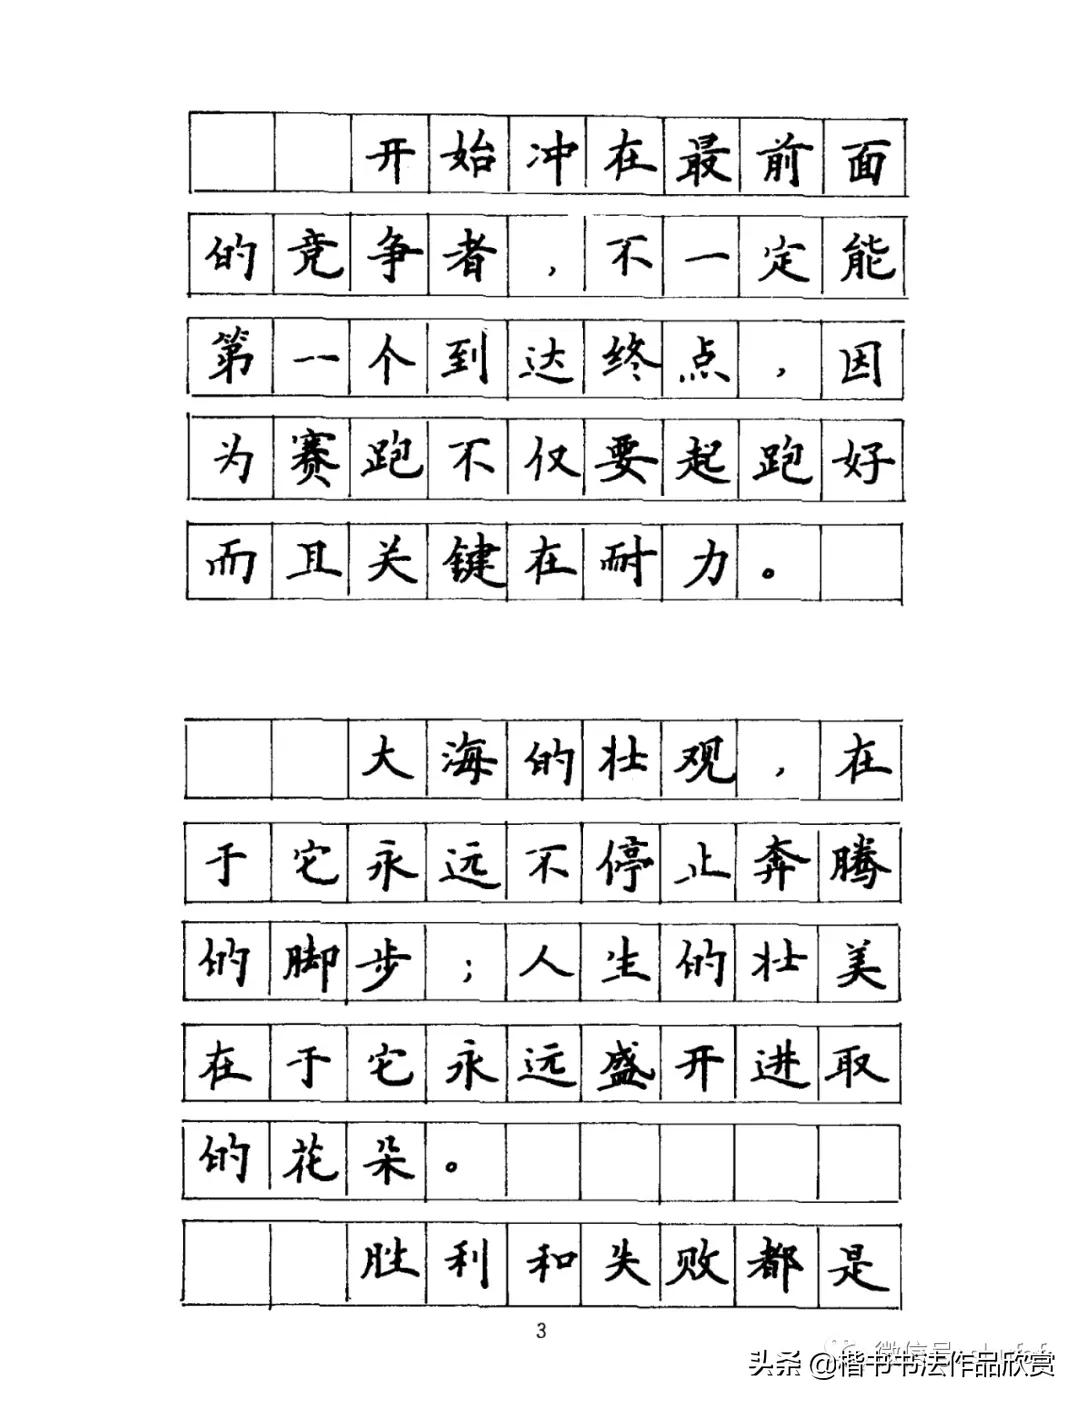 开始冲在最前面
的竞争者，不一定能
第一个到达终点，因
为赛跑不仅要起跑好
而且关键在耐力。
大海的壮观，在
于它永远不停止奔腾
的脚步；人生的壮美
在于它永远盛开进取
的花朵。
胜利和失败都是
3
微信号
头条@楷书书法作品欣赏